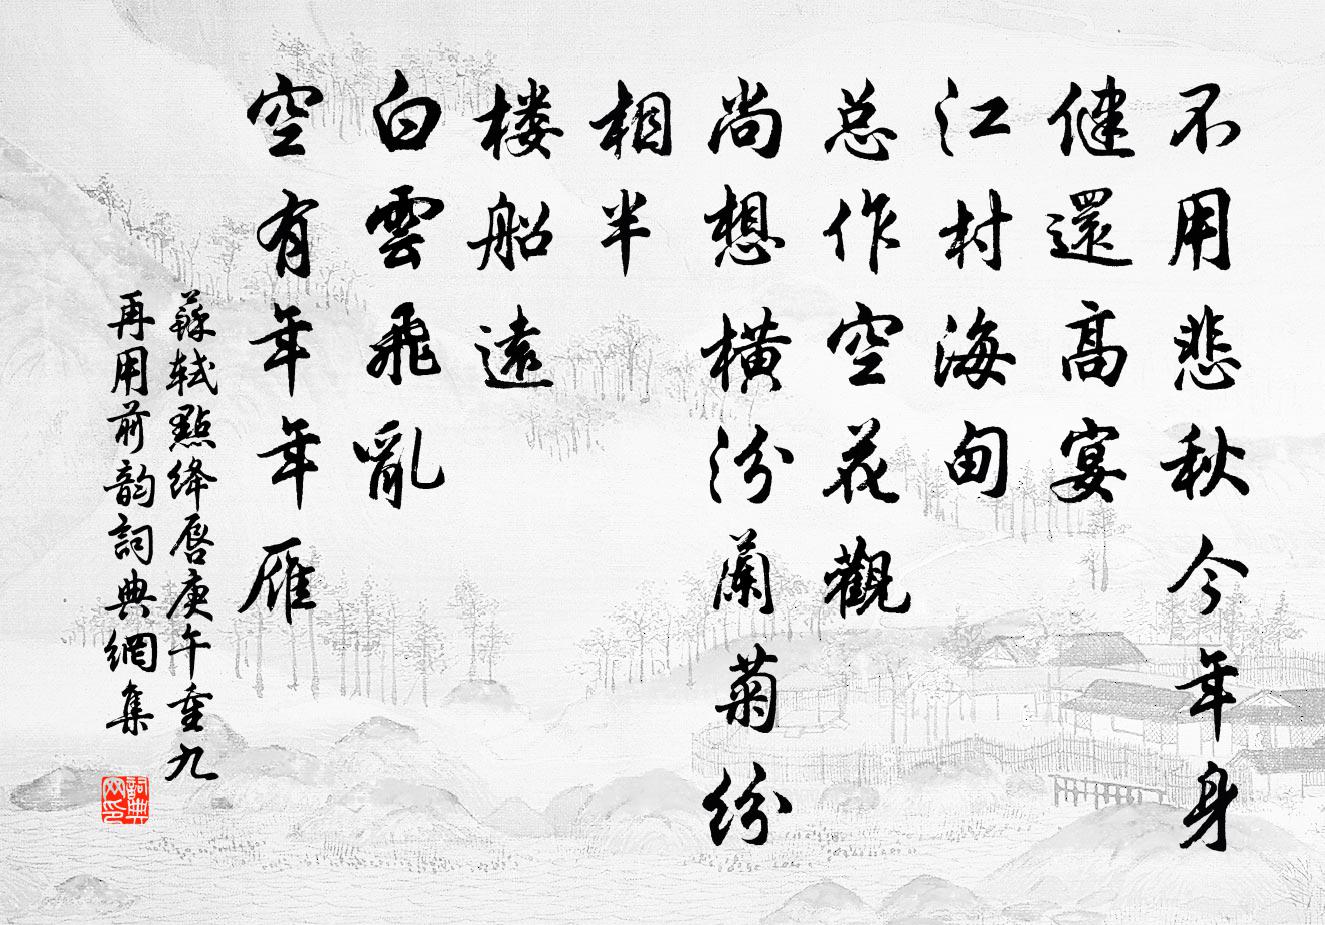 不用悲秋今年身
健還高宴
江村海甸
总作空花觀
尚想橫汾蘭菊紛
相半
楼船遠
白雲飛亂
空有年年雁
蘇轼點绛唇庚午重九
再用前韵詞典網集
詞典
网印